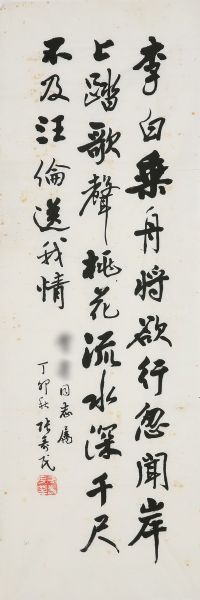 李白乘舟將欲行忽聞岸
上踏歌聲桃花流水深千尺
不及汪倫送我情
同志屬
丁卯秋